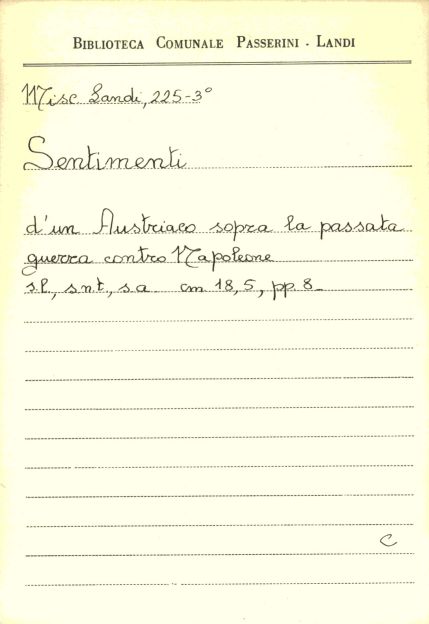 BIBLIOTECA COMUNALE PASSERINI - LANDI
Misc Landi, 225-3°
Sentimenti
d'un Austriaco sopra la passata
guerra contro Napoleone
s.l., s.n.t., s.a. cm 18,5, pp. 8_
C